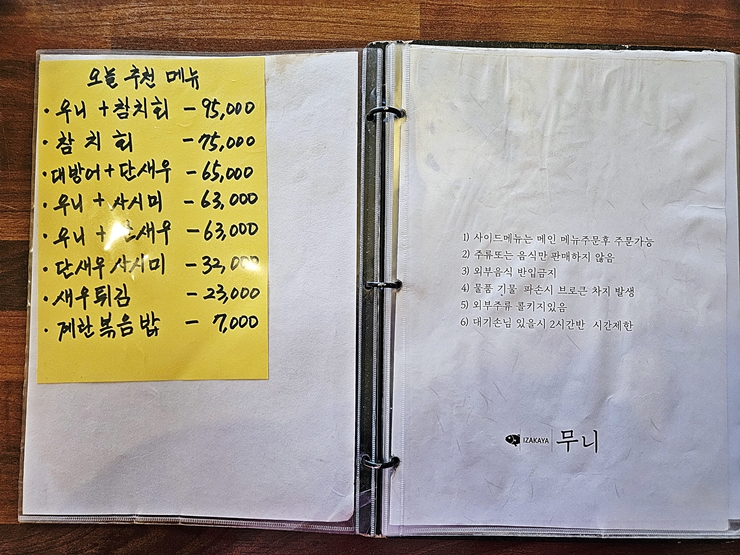 오늘 추천 메뉴
· 우니 + 참치회 - 95,000
· 참치회 - 75,000
· 대방어 + 단새우 - 65,000
· 우니 + 사시미 - 63,000
· 우니 + 단새우 - 63,000
· 단새우 사시미 - 32,000
· 새우튀김 - 23,000
· 계란볶음밥 - 7,000
1) 사이드메뉴는 메인 메뉴주문후 주문가능
2) 주류또는 음식만 판매하지 않음
3) 외부음식 반입금지
4) 물품 기물 파손시 브로큰 차지 발생
5) 외부주류 콜키지있음
6) 대기손님 있을시 2시간반 시간제한
IZAKAYA 무니